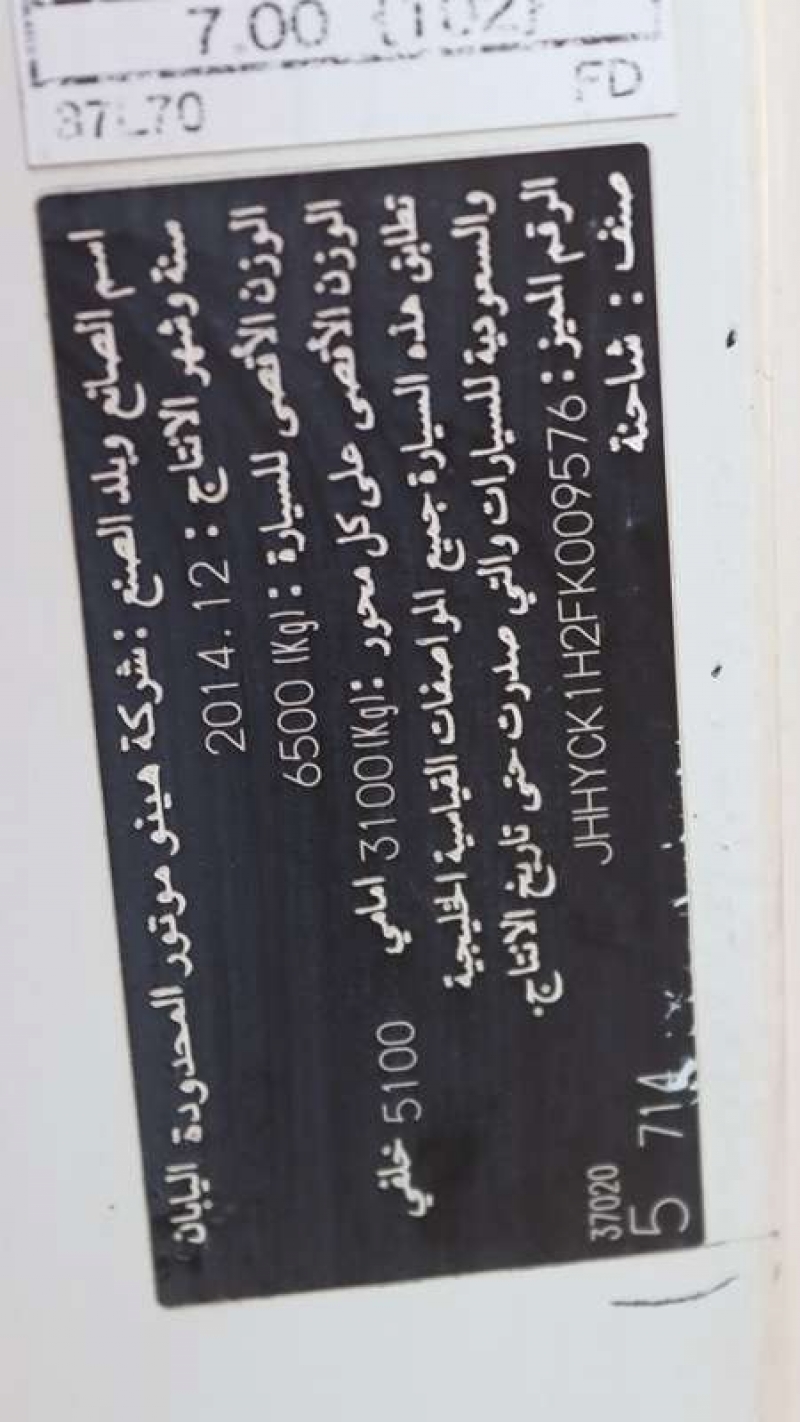 7.00 {102}
FD
اسم الصانع وبلد الصنع : شركة هينو موتور المحدودة اليابان
سنة وشهر الانتاج : 2014.12
الوزن الأقصى للسيارة : 6500 (Kg)
الوزن الأقصى على كل محور : 3100(Kg) امامي 5100 خلفي
تطابق هذه السيارة جميع المواصفات القياسية الخليجية
والسعودية للسيارات والتي صدرت حتى تاريخ الانتاج.
الرقم المميز : JHHYCK1H2FK009576
صنف : شاحنة
37020
5 714